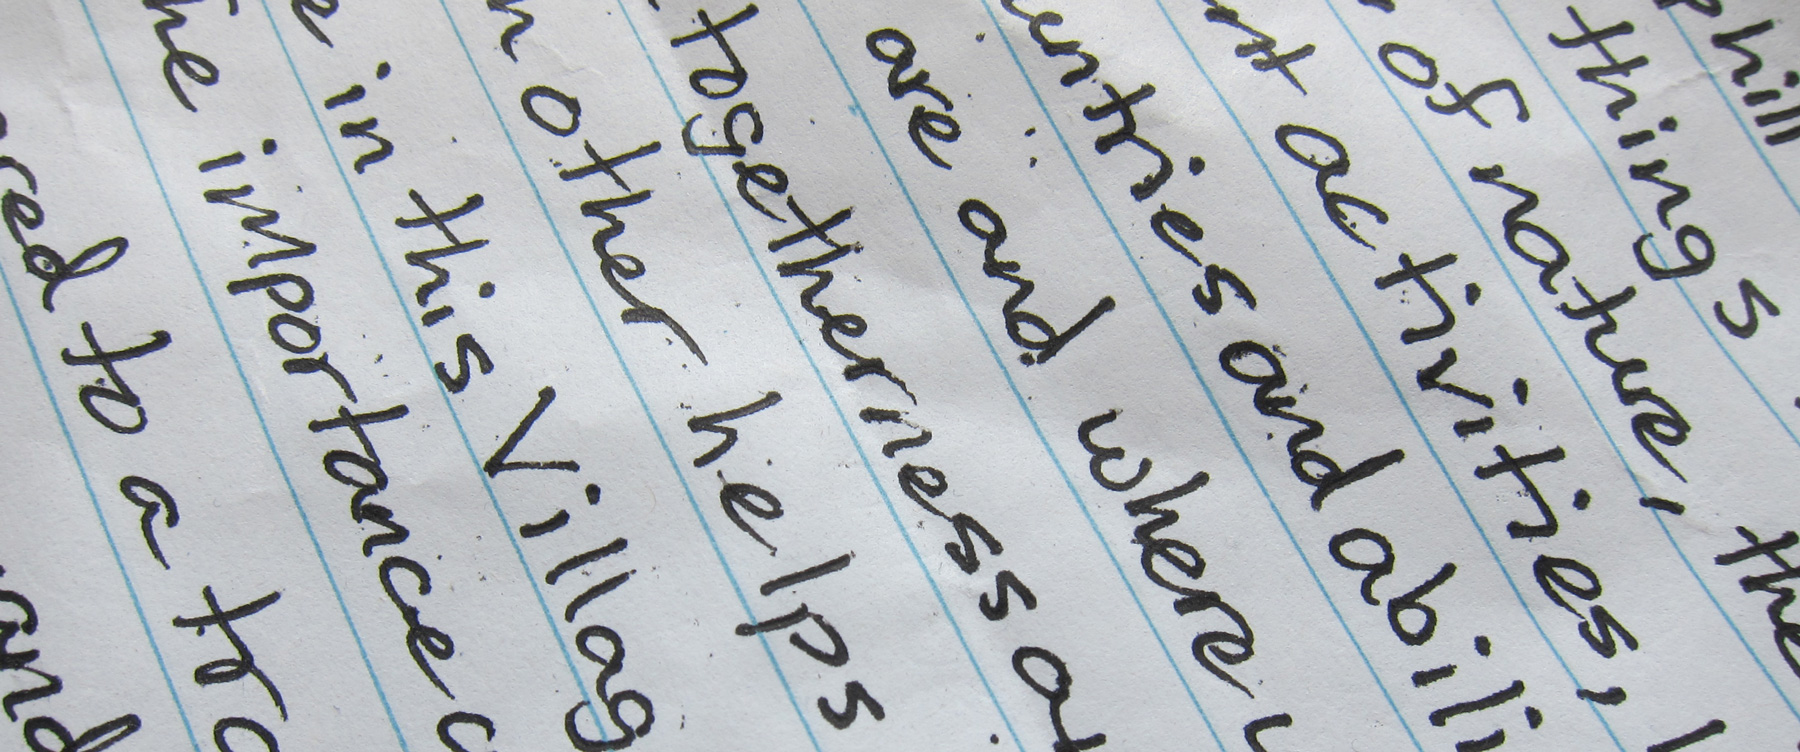 phill
things
of nature, the
activities,
untries and abili
are and where
togetherness a
n other helps
e in this Villag
he importance
red to a
and